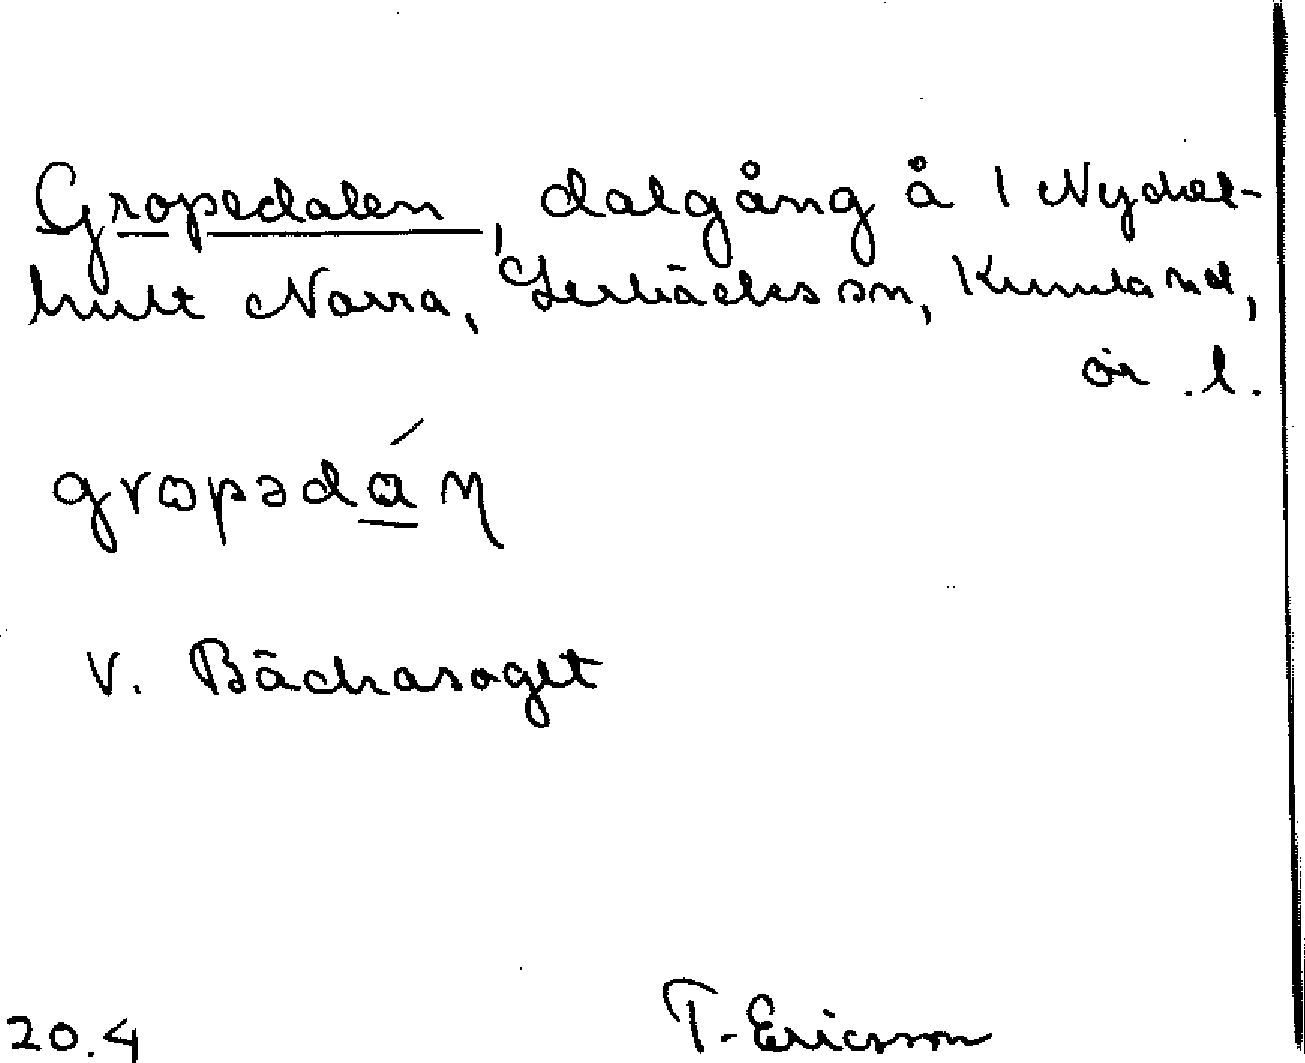 Gropedalen, dalgång å 1 Nyckel-
hult Norra, Lerbäcks sn, Kumla hd,
ör. l.
gropədáη
V. Bäckaroget
20.4
T. Ericsson